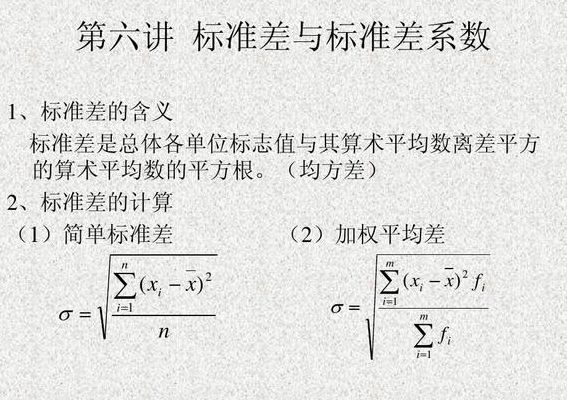 第六讲 标准差与标准差系数
1、标准差的含义
标准差是总体各单位标志值与其算术平均数离差平方
的算术平均数的平方根。（均方差）
2、标准差的计算
（1）简单标准差 （2）加权平均差
σ = √(∑_{i=1}^{n} (x_i − x̄)² / n) σ = √(∑_{i=1}^{m} (x_i − x̄)² f_i / ∑_{i=1}^{m} f_i)